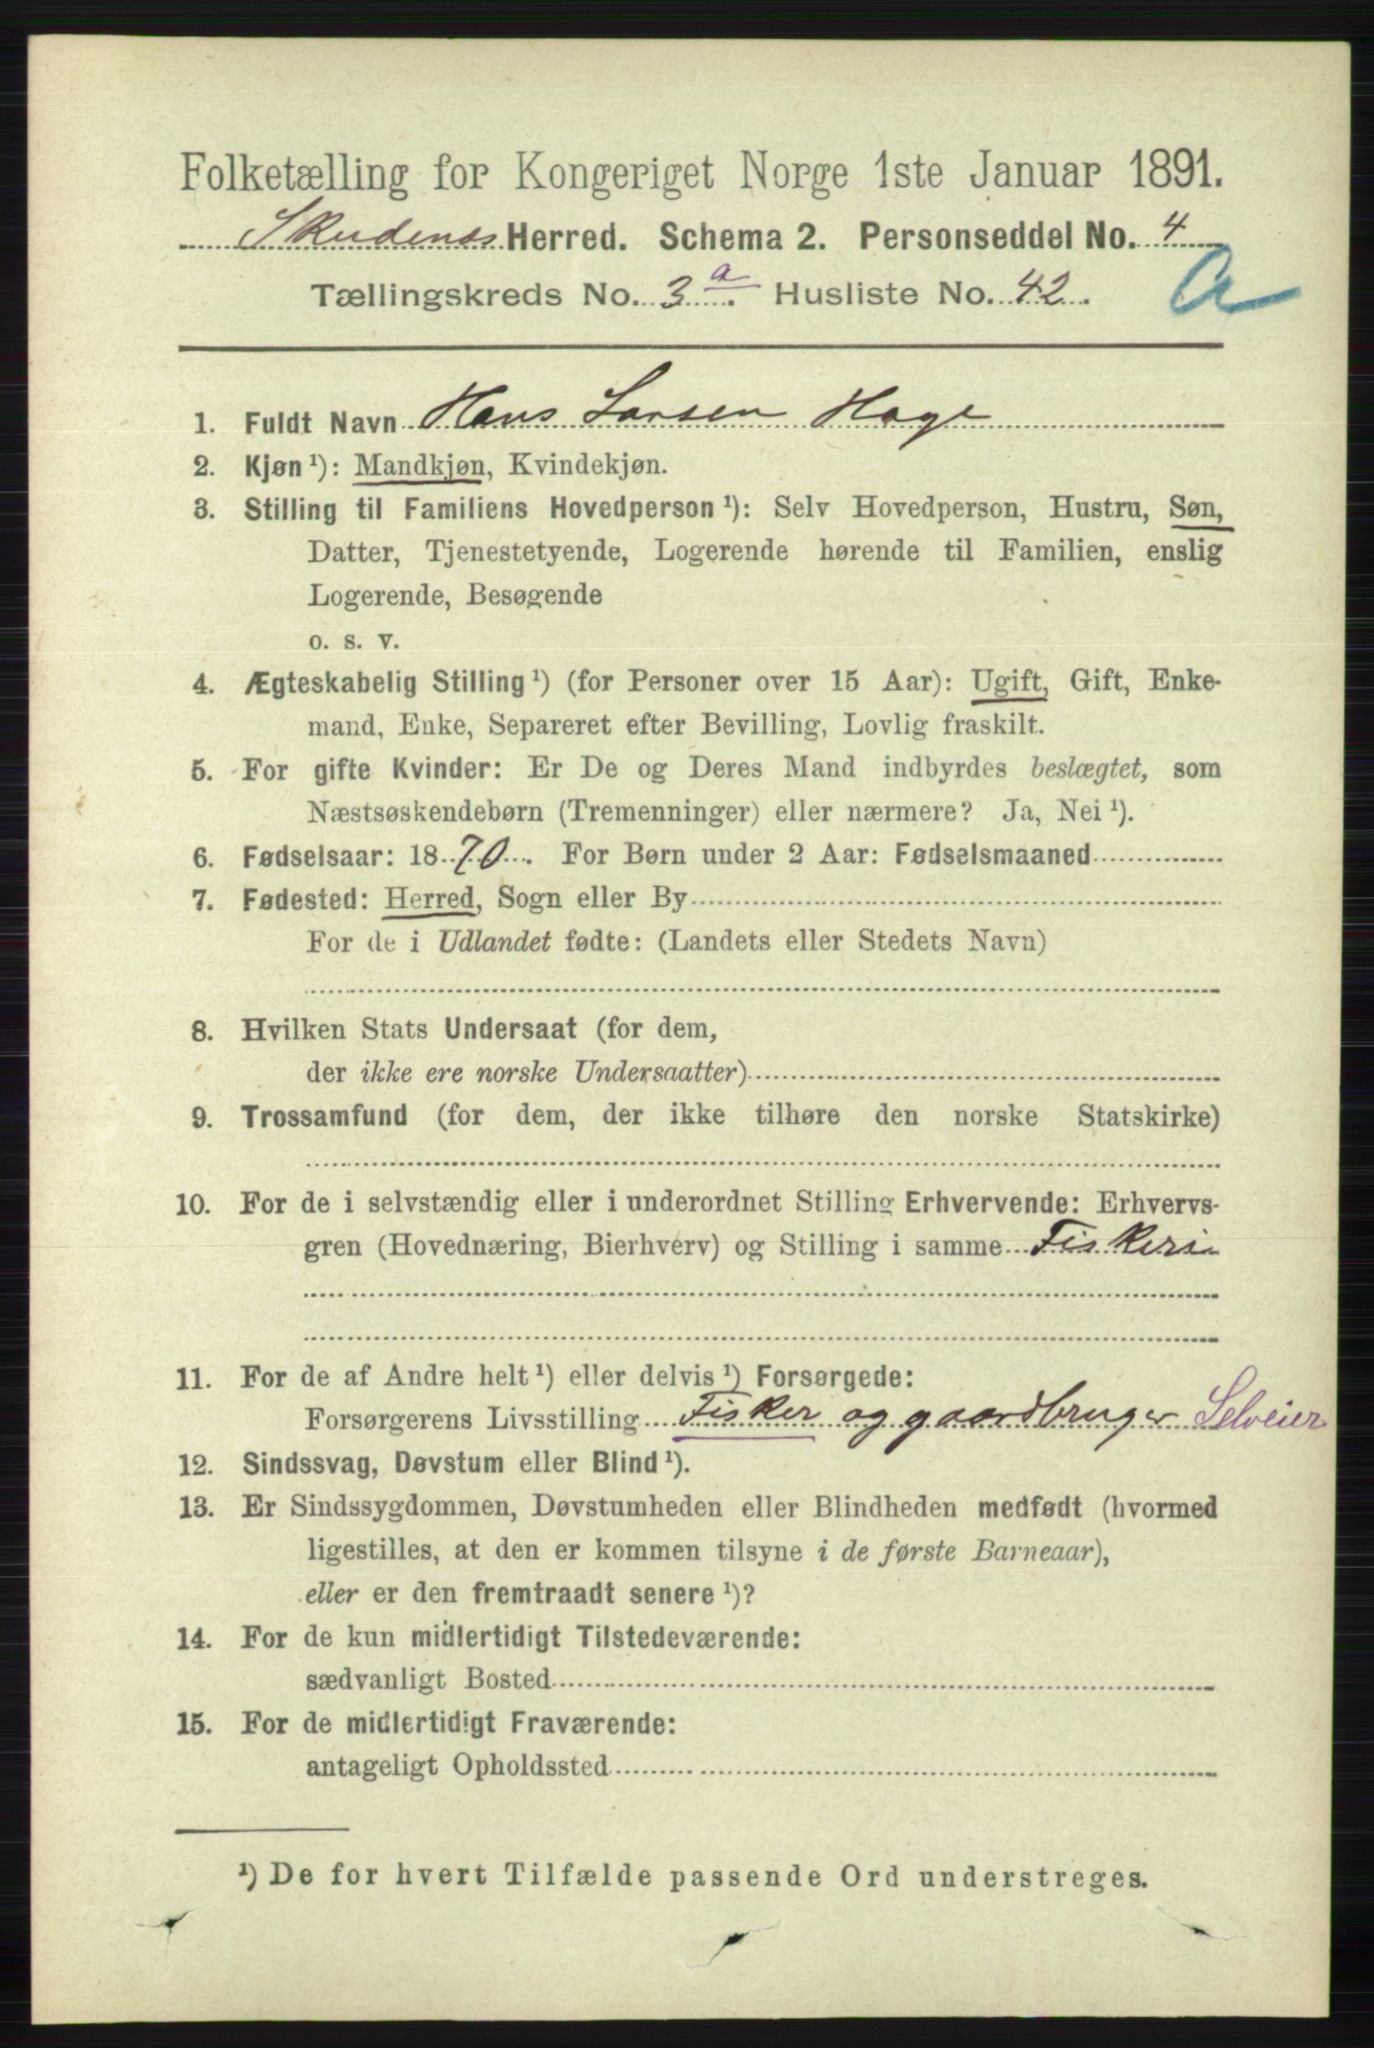 Folketælling for Kongeriget Norge 1ste Januar 1891.
Skudenes Herred. Schema 2. Personseddel No. 4
Tællingskreds No. 3 a. Husliste No. 42.
a
1. Fuldt Navn Hans Larsen Hage
2. Kjøn ¹): Mandkjøn, Kvindekjøn.
3. Stilling til Familiens Hovedperson ¹): Selv Hovedperson, Hustru, Søn,
Datter, Tjenestetyende, Logerende hørende til Familien, enslig
Logerende, Besøgende
o. s. v.
4. Ægteskabelig Stilling ¹) (for Personer over 15 Aar): Ugift, Gift, Enke-
mand, Enke, Separeret efter Bevilling, Lovlig fraskilt.
5. For gifte Kvinder: Er De og Deres Mand indbyrdes beslægtet, som
Næstsøskendebørn (Tremenninger) eller nærmere? Ja, Nei ¹).
6. Fødselsaar: 1870. For Børn under 2 Aar: Fødselsmaaned
7. Fødested: Herred, Sogn eller By
For de i Udlandet fødte: (Landets eller Stedets Navn)
8. Hvilken Stats Undersaat (for dem,
der ikke ere norske Undersaatter)
9. Trossamfund (for dem, der ikke tilhøre den norske Statskirke)
10. For de i selvstændig eller i underordnet Stilling Erhvervende: Erhvervs-
gren (Hovednæring, Bierhverv) og Stilling i samme Fiskeri
11. For de af Andre helt ¹) eller delvis ¹) Forsørgede:
Forsørgerens Livsstilling Fisker og gaardbruger Selveier
12. Sindssvag, Døvstum eller Blind ¹).
13. Er Sindssygdommen, Døvstumheden eller Blindheden medfødt (hvormed
ligestilles, at den er kommen tilsyne i de første Barneaar),
eller er den fremtraadt senere ¹)?
14. For de kun midlertidigt Tilstedeværende:
sædvanligt Bosted
15. For de midlertidigt Fraværende:
antageligt Opholdssted
¹) De for hvert Tilfælde passende Ord understreges.